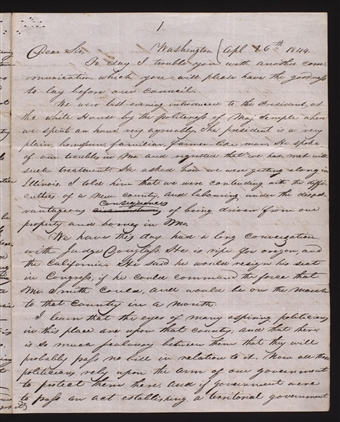 1
Dear Sir, Washington Apl 26th 1844
To day I trouble you with another com-
munication which you will please have the goodness
to lay before our council.
We were last evening introduced to the President, at
the white House by the politeness of Maj Semple where
we spent an hour very agreeably. The president is a very
plain, homespun, familiar, farmer like man. He spoke
of our troubles in Mo and regretted that we had met with
such treatment. He asked how we were getting along in
Illinois. I told him that we were contending with the diffi-
culties of a new county, and labouring under the disad-
vantageous consequences of being driven from our
property and homes in Mo.
We have this day had a long conversation
with Judge Douglass He is ripe for oregon and
the California. He said he would resign his seat
in Congress, if he could command the force that
Mr Smith could, and would be on the march
to that Country in a month.
I learn that the eyes of many aspiring politicians
in this place are upon that country, and that there
is so much jealousy between them that they will
probably pass no bill in relation to it. Now all these
politicians rely upon the arm of our government
to protect them there; and if government were
to pass an act establishing a territorial government